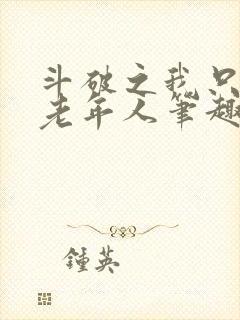 斗破之我只
老年人笔趣
鍾英